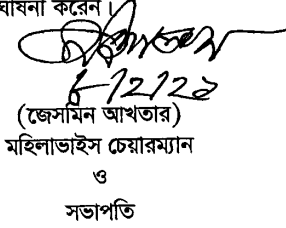 ঘোষনা করেন।
৮/2/2১
(জেসমিন আখতার)
মহিলাভাইস চেয়ারম্যান
ও
সভাপতি